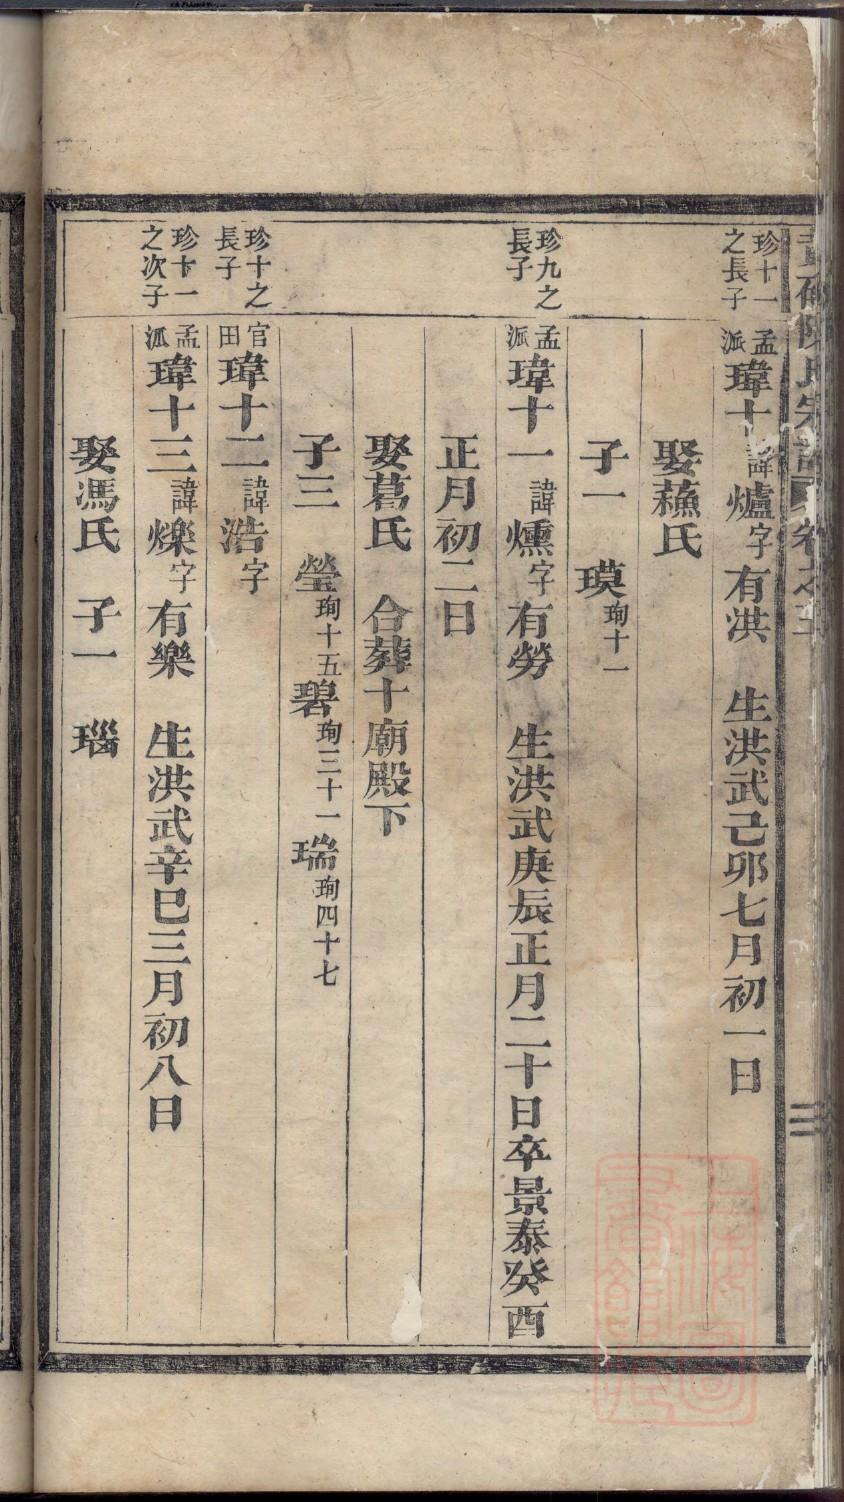 珍十一之長子
孟派瑋十諱爐字有洪 生洪武己卯七月初一日
娶蘓氏
子一 瑛珣十一
珍九之長子
孟派瑋十一諱燻字有勞 生洪武庚辰正月二十日卒景泰癸酉
正月初二日
娶葛氏 合葬十廟殿下
子三 瑩珣十五碧珣三十一瑞珣四十七
珍十之長子
官田瑋十二諱浩字
珍十一之次子
孟派瑋十三諱爍字有樂 生洪武辛巳三月初八日
娶馮氏 子一 瑙